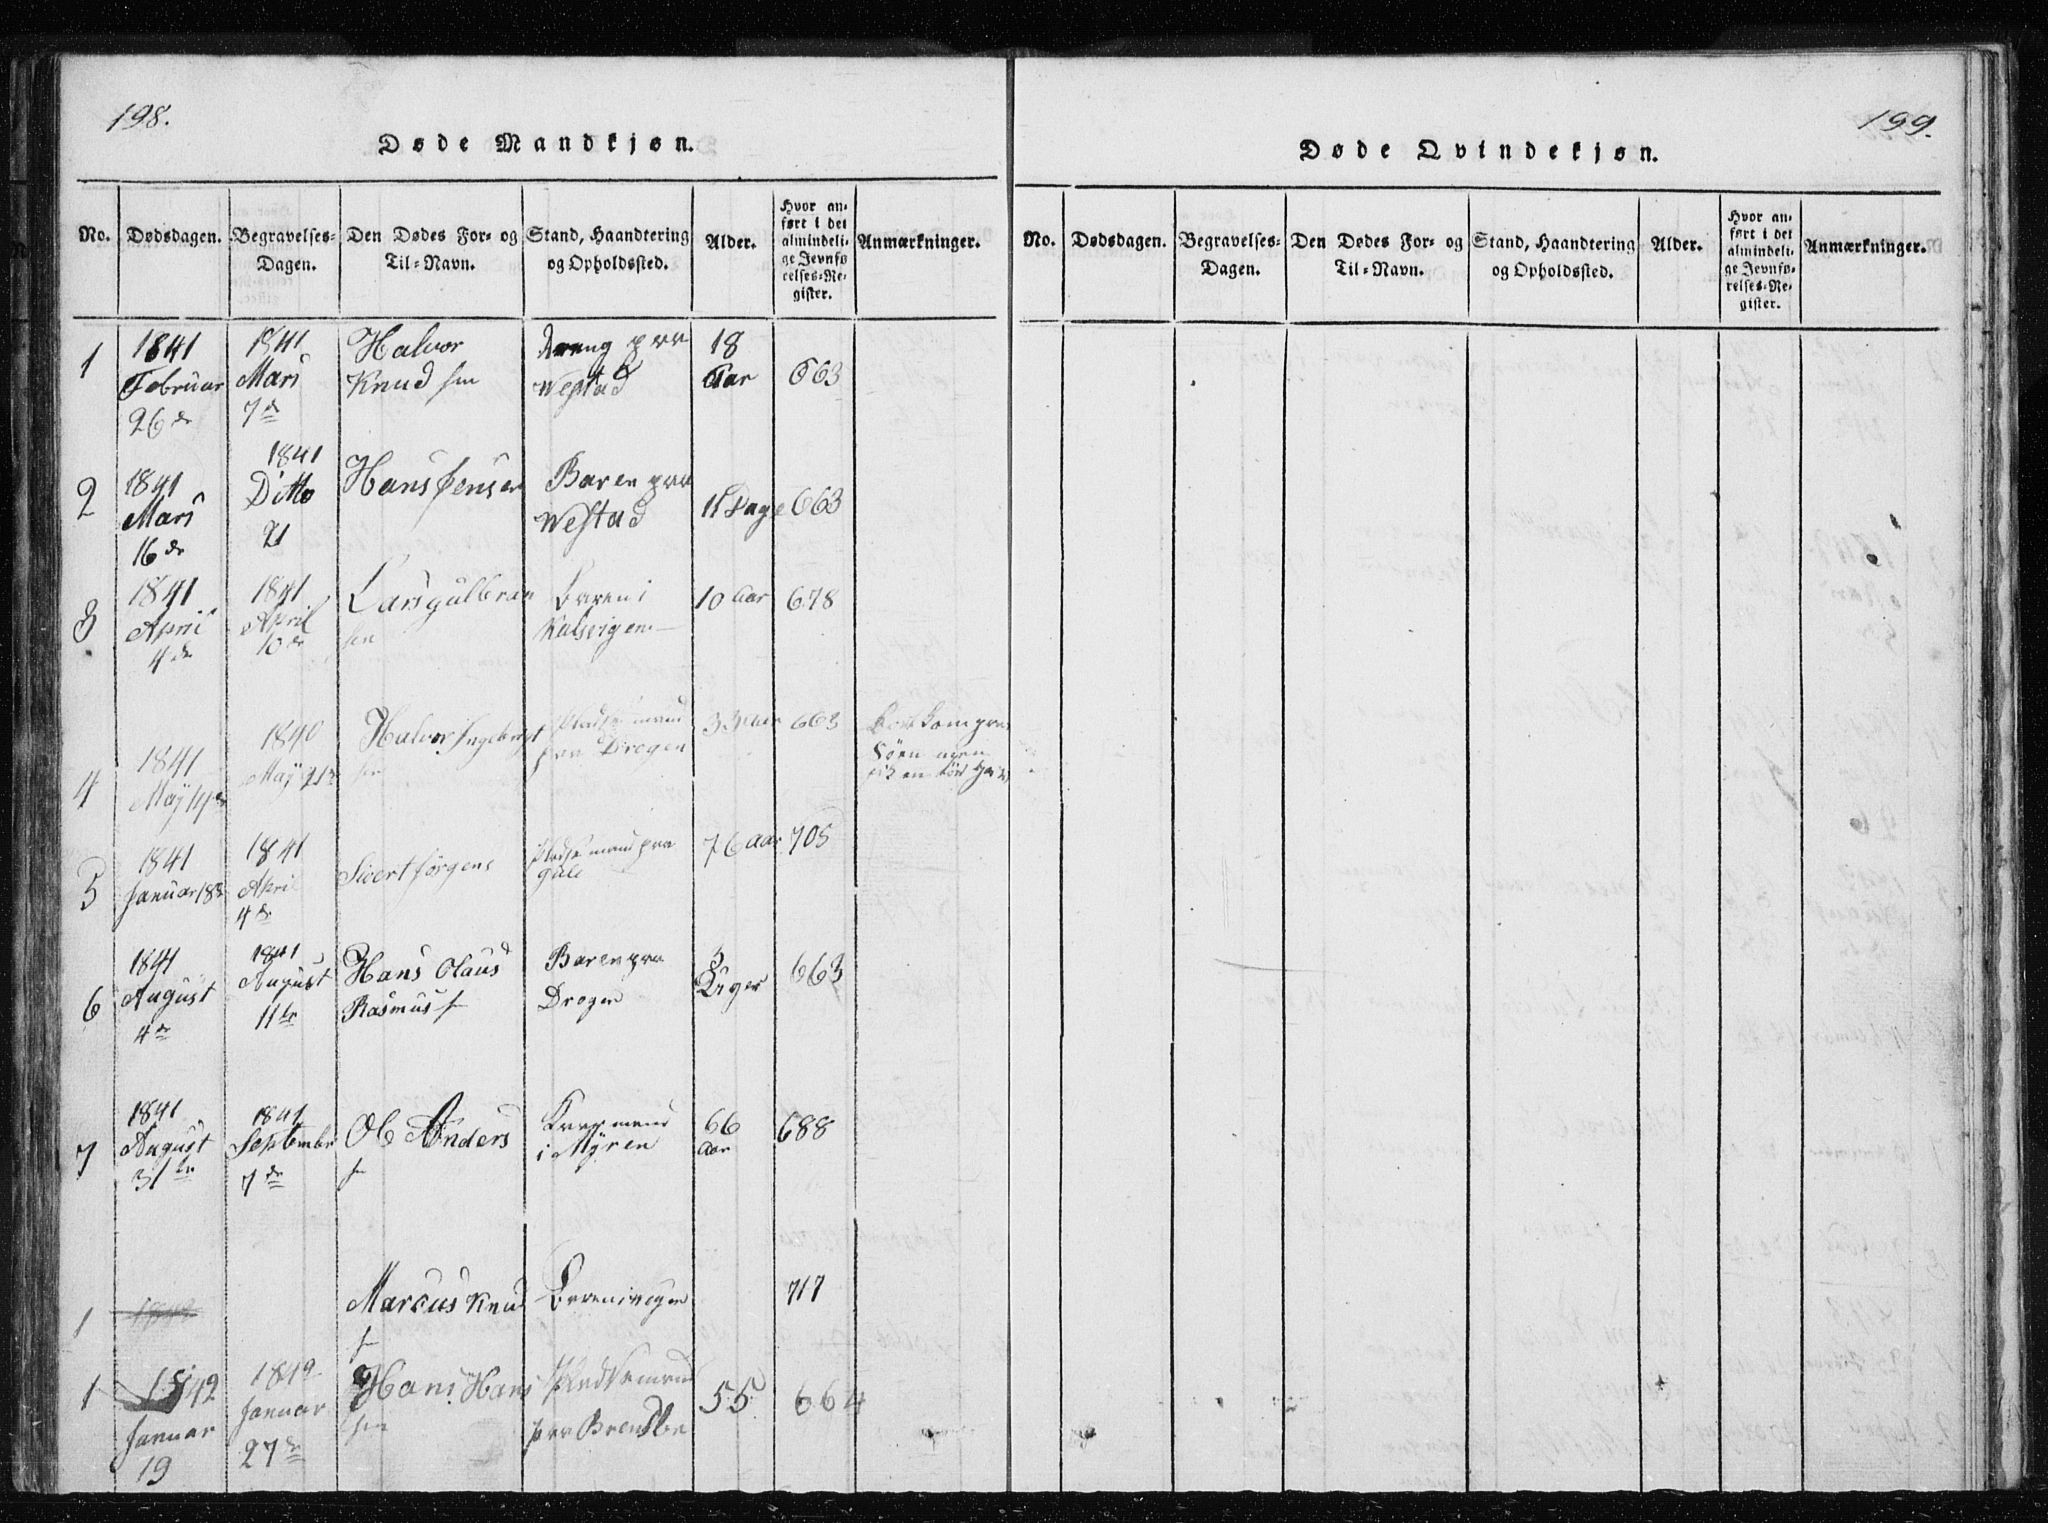 198.
Døde Mandkjøn.
No.
Dødsdagen.
Begravelses-
Dagen.
Den Dødes For- og
Til-Navn.
Stand, Haandtering
og Opholdssted.
Alder.
Hvor an-
ført i det
almindeli-
ge Jevnfø-
relses-Re-
gister.
Anmærkninger.
1
1841
Februar
26 de
1841
Mars
7 de
Halvor
Knud sen
dreng paa
Westad
18
Aar
663
2
1841
Mars
16 de
1841
Ditto
21
Hans Jensen
Baren paa
Westad
11 Dage
663
3
1841
April
4 de
1841
April
10 de
Lars gulbran
sen
Baren i
Kalvigen
10 Aar
678
4
1841
Maÿ 14 de
1840
Maÿ 21
Halvor Ingebrigt
sen
Pladsemand
paa Drogen
33 aar
663
Søen men
5
1841
Januar 18 de
1841
April
4 de
Sivert Jørgens
Pladsemand paa
76 aar
705
6
1841
August
4 de
1841
August
11 te
Hans Olaus
Rasmus s
Baren paa
Drogen
3
Uger
663
7
1841
August
31 te
1841
September
7 de
Ole Anders
s
mand
i Myren
66
Aar
688
1
Marcus Knud
s
717
1
1842
Januar
19
1842
Januar
27 de
Hans Hans
sen
Pladsemand
paa
55
664
199.
Døde Qvindekjøn.
No.
Dødsdagen.
Begravelses-
Dagen.
Den Dødes For- og
Til-Navn.
Stand, Haandtering
og Opholdssted.
Alder.
Hvor an-
ført i det
almindeli-
ge Jevnfø-
relses-Re-
gister.
Anmærkninger.